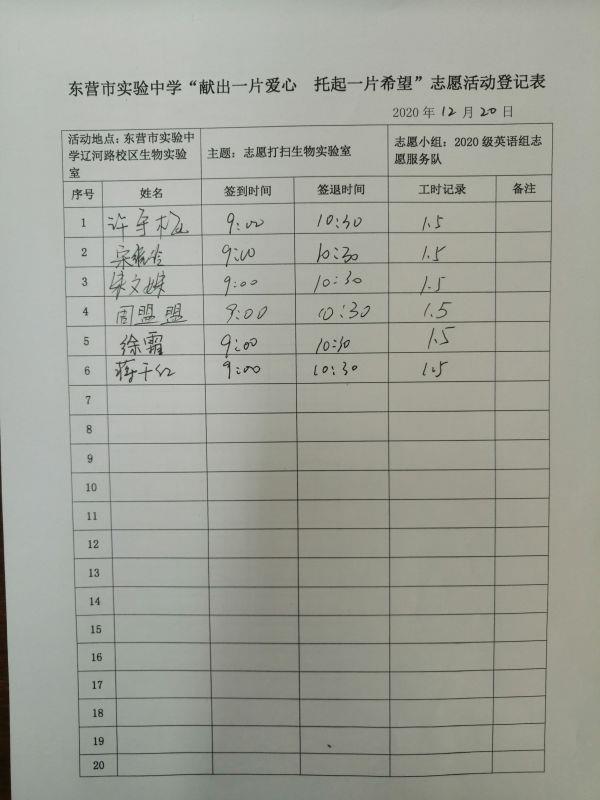 东营市实验中学“献出一片爱心 托起一片希望”志愿活动登记表
2020 年 12 月 20 日
活动地点：东营市实验中学辽河路校区生物实验室 主题：志愿打扫生物实验室 志愿小组：2020 级英语组志愿服务队
序号 姓名 签到时间 签退时间 工时记录 备注
1 许 9:00 10:30 1.5
2 宋 9:00 10:30 1.5
3 文 9:00 10:30 1.5
4 周盟盟 9:00 10:30 1.5
5 徐霜 9:00 10:30 1.5
6 蒋于红 9:00 10:30 1.5
7
8
9
10
11
12
13
14
15
16
17
18
19
20